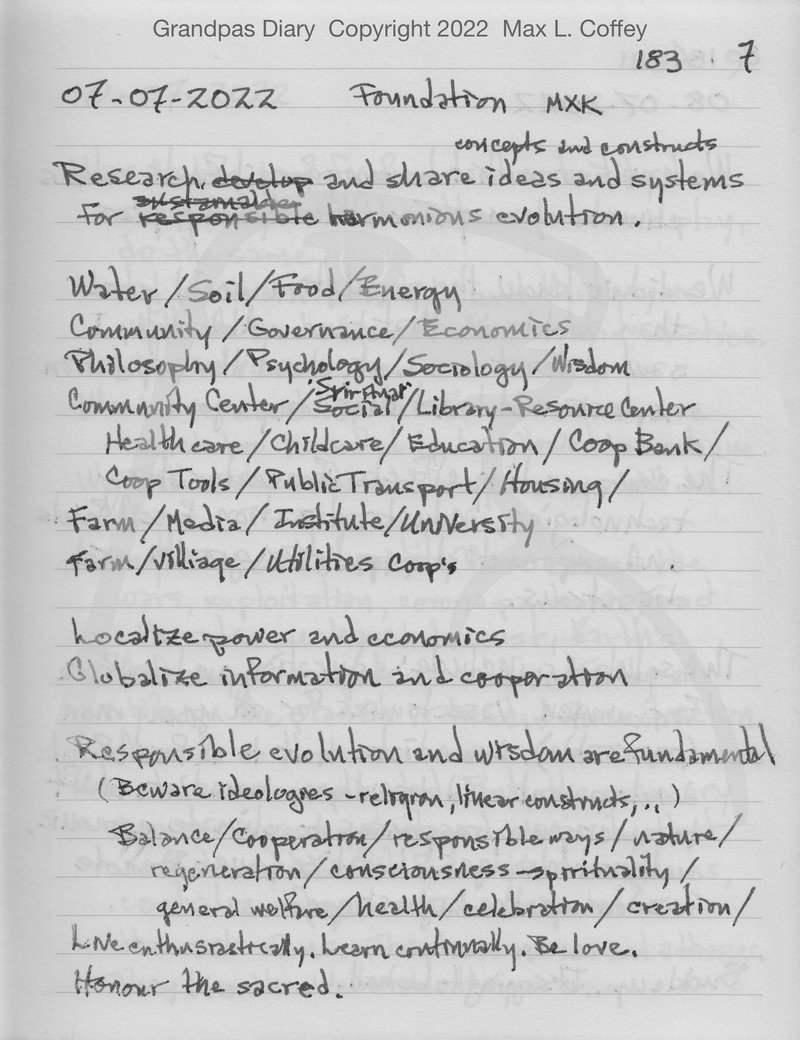 Grandpas Diary Copyright 2022 Max L. Coffey
183 7
07-07-2022 Foundation MXK
concepts and constructs
Research, develop and share ideas and systems
sustainable
for responsible harmonious evolution.
Water/Soil/Food/Energy
Community/Governance/Economics
Philosophy/Psychology/Sociology/Wisdom
Spiritual
Community Center/Social/Library-Resource Center
Healthcare/Childcare/Education/Coop Bank/
Coop Tools/Public Transport/Housing/
Farm/Media/Institute/University
Farm/Villiage/Utilities Coop's
Localize power and economics
Globalize information and cooporation
Responsible evolution and wisdom are fundamental
(Beware ideologies - religion, linear constructs,..)
Balance/Cooperation/responsible ways/nature/
regeneration/consciousness-spirituality/
general welfare/health/celebration/creation/
Live enthusiastically. Learn continually. Be love.
Honour the sacred.